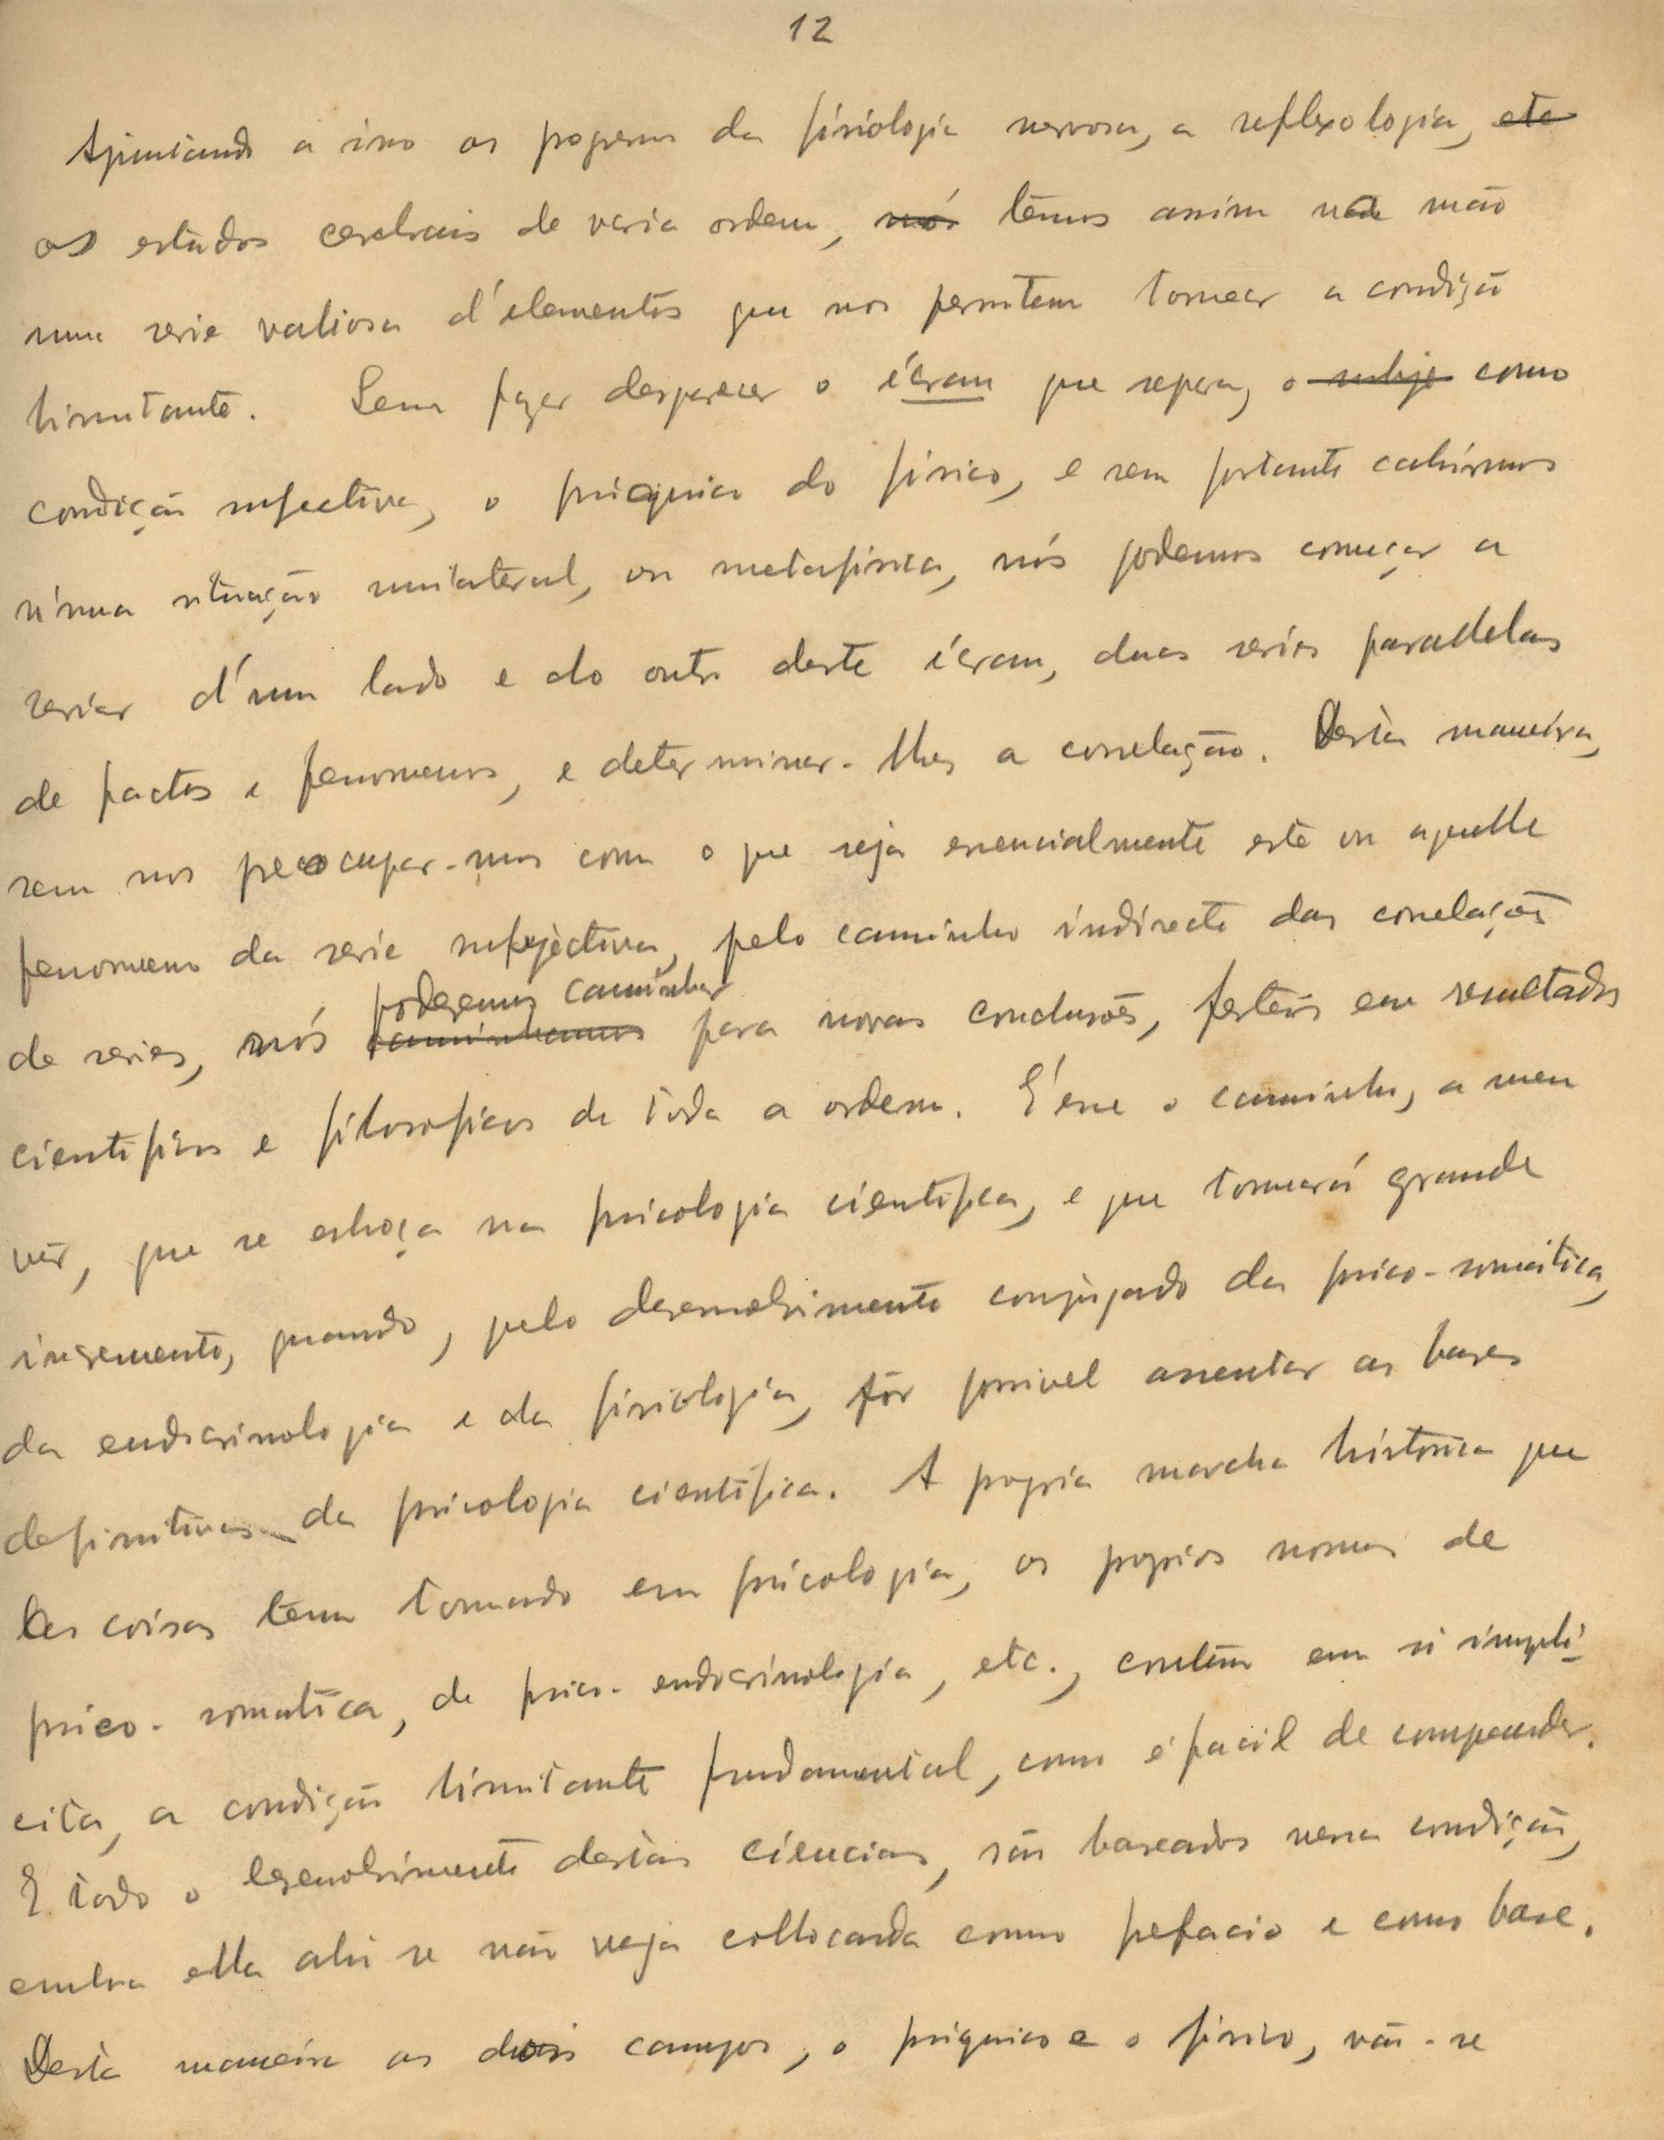 12
Ajuntando a isso os progressos da fisiologia nervosa, a reflexologia, etc
os estudos cerebraes de varia ordem, nós têmos assim na mão
uma serie valiosa d'elementos que nos permitem tornear a condição
limitante. Sem fazer desparecer o écran que separa, o subje como
condição subjectiva, o psiquico do físico, e sem portanto cahirmos
n'uma situação unilateral, ou metafísica, nós podemos começar a
seriar d'um lado e do outro deste écran, duas series paradelas
de factos e fenomenos, e determinar-lhes a correlação. Desta maneira,
sem nos preocupar-mos com o que seja essencialmente este ou aquelle
fenomeno da serie subjectiva, pelo caminho indirecto das correlações
de series, nós caminhamos podêremos caminhar para novas conclusões, ferteis em resultados
cientificos e filosoficos de toda a ordem. É esse o caminho, a meu
vêr, que se esboça na psicologia cientifica, e que tomará grande
incremento, quando, pelo desenvolvimento conjugado da psico-somática,
da endocrinologia e da fisiologia, fôr possivel assentar as bases
definitivas da psicologia cientifica. A propria marcha histórica que
as coisas têem tomado em psicologia, os proprios nomes de
psico-somatica, de psico-endocrinologia, etc., contêm em si impli-
cita, a condição limitante fundamental, como é facil de compreender.
E todo o desenvolvimento destas ciencias, são baseados nessa condição,
embora ella ahi se não veja collocada como prefacio e como base.
Desta maneira os dois campos, o psiquico e o físico, vão-se